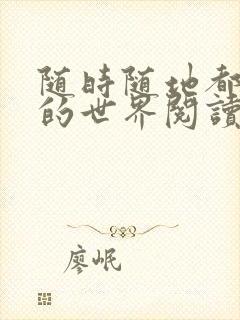 随時随地都
的世界閱讀
廖岷